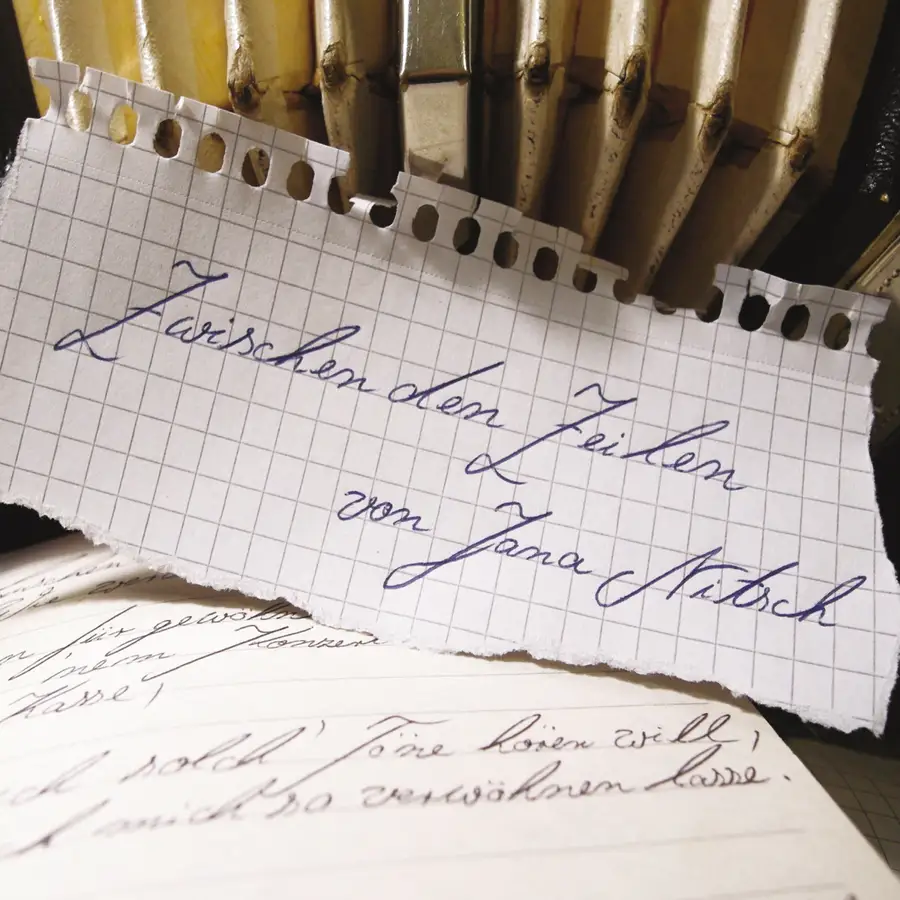 Zwischen den Zeilen
von Jana Nitsch
für gewöhn
'nem Konzer
Kasse,
ch solch' Töne hören will,
mich so verwöhnen lasse.